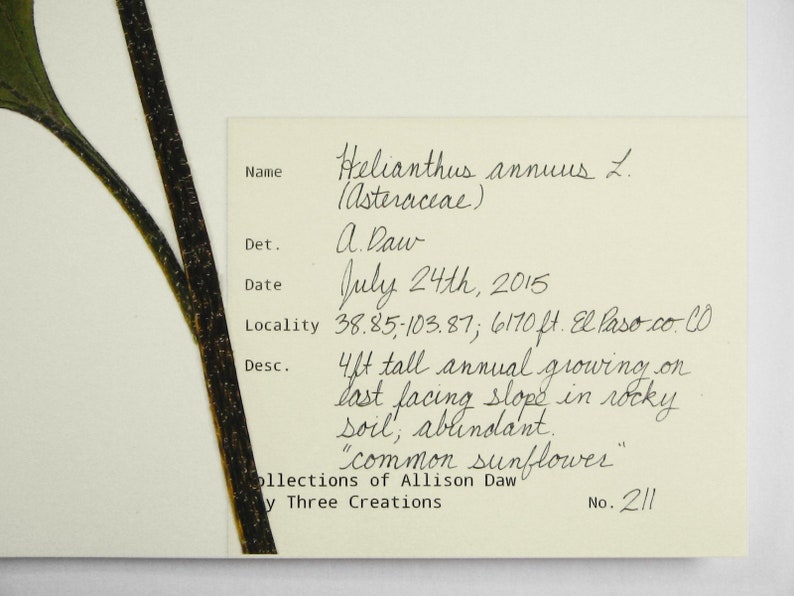 Name Helianthus annuus L.
(Asteraceae)
Det. A. Daw
Date July 24th, 2015
Locality 38.85,-103.87; 6170 ft. El Paso co. CO
Desc. 4ft tall annual growing on
east facing slope in rocky
soil; abundant.
"common sunflower"
ollections of Allison Daw
y Three Creations No. 211